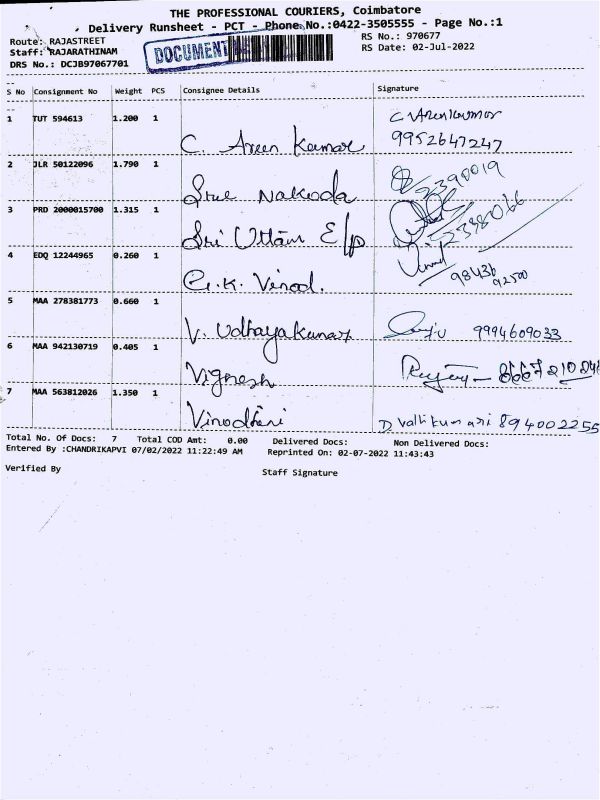 THE PROFESSIONAL COURIERS, Coimbatore
Delivery Runsheet - PCT - Phone No.:0422-3505555 - Page No.:1
Route: RAJASTREET RS No.: 970677
Staff: RAJARATHINAM DOCUMENT RS Date: 02-Jul-2022
DRS No.: DCJB97067701
S No Consignment No Weight PCS Consignee Details Signature
1 TUT 594613 1.200 1 C. Areen Kumar 9952647247
2 JLR 50122096 1.790 1 Sree Nakoda 2390019
3 PRD 2000015700 1.315 1 Sri Uttam E/p 2388066
4 EDQ 12244965 0.260 1 G.K. Vinod. Vinod 98436 92500
5 MAA 278381773 0.660 1 V. Udhayakumar 9994609033
6 MAA 942130719 0.405 1 Vignesh
7 MAA 563812026 1.350 1 Vinodhini D Vallikumari 894002255
Total No. Of Docs: 7 Total COD Amt: 0.00 Delivered Docs: Non Delivered Docs:
Entered By :CHANDRIKAPVI 07/02/2022 11:22:49 AM Reprinted On: 02-07-2022 11:43:43
Verified By Staff Signature